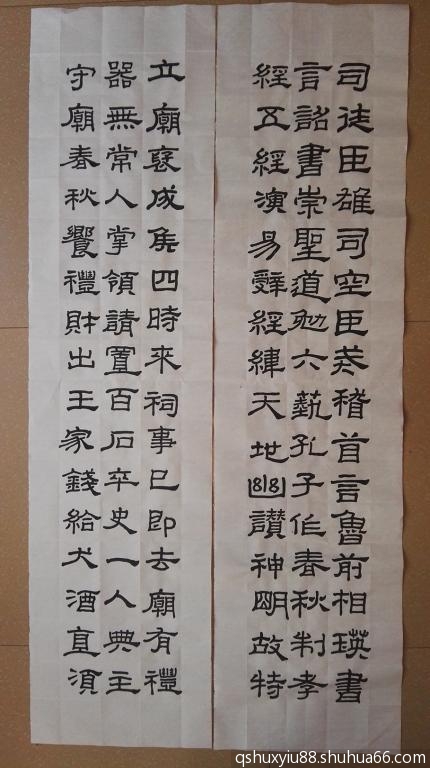 司徒臣雄司空臣戒稽首言魯前相瑛書
言詔書崇聖道勉六藝孔子作春秋制孝
經五經演易辭經緯天地幽讚神明故特
立廟褒成侯四時來祠事已即去廟有禮
器無常人掌領請置百石卒史一人典主
守廟春秋饗禮財出王家錢給犬酒直須
qshuxyiu88.shuhua66.com